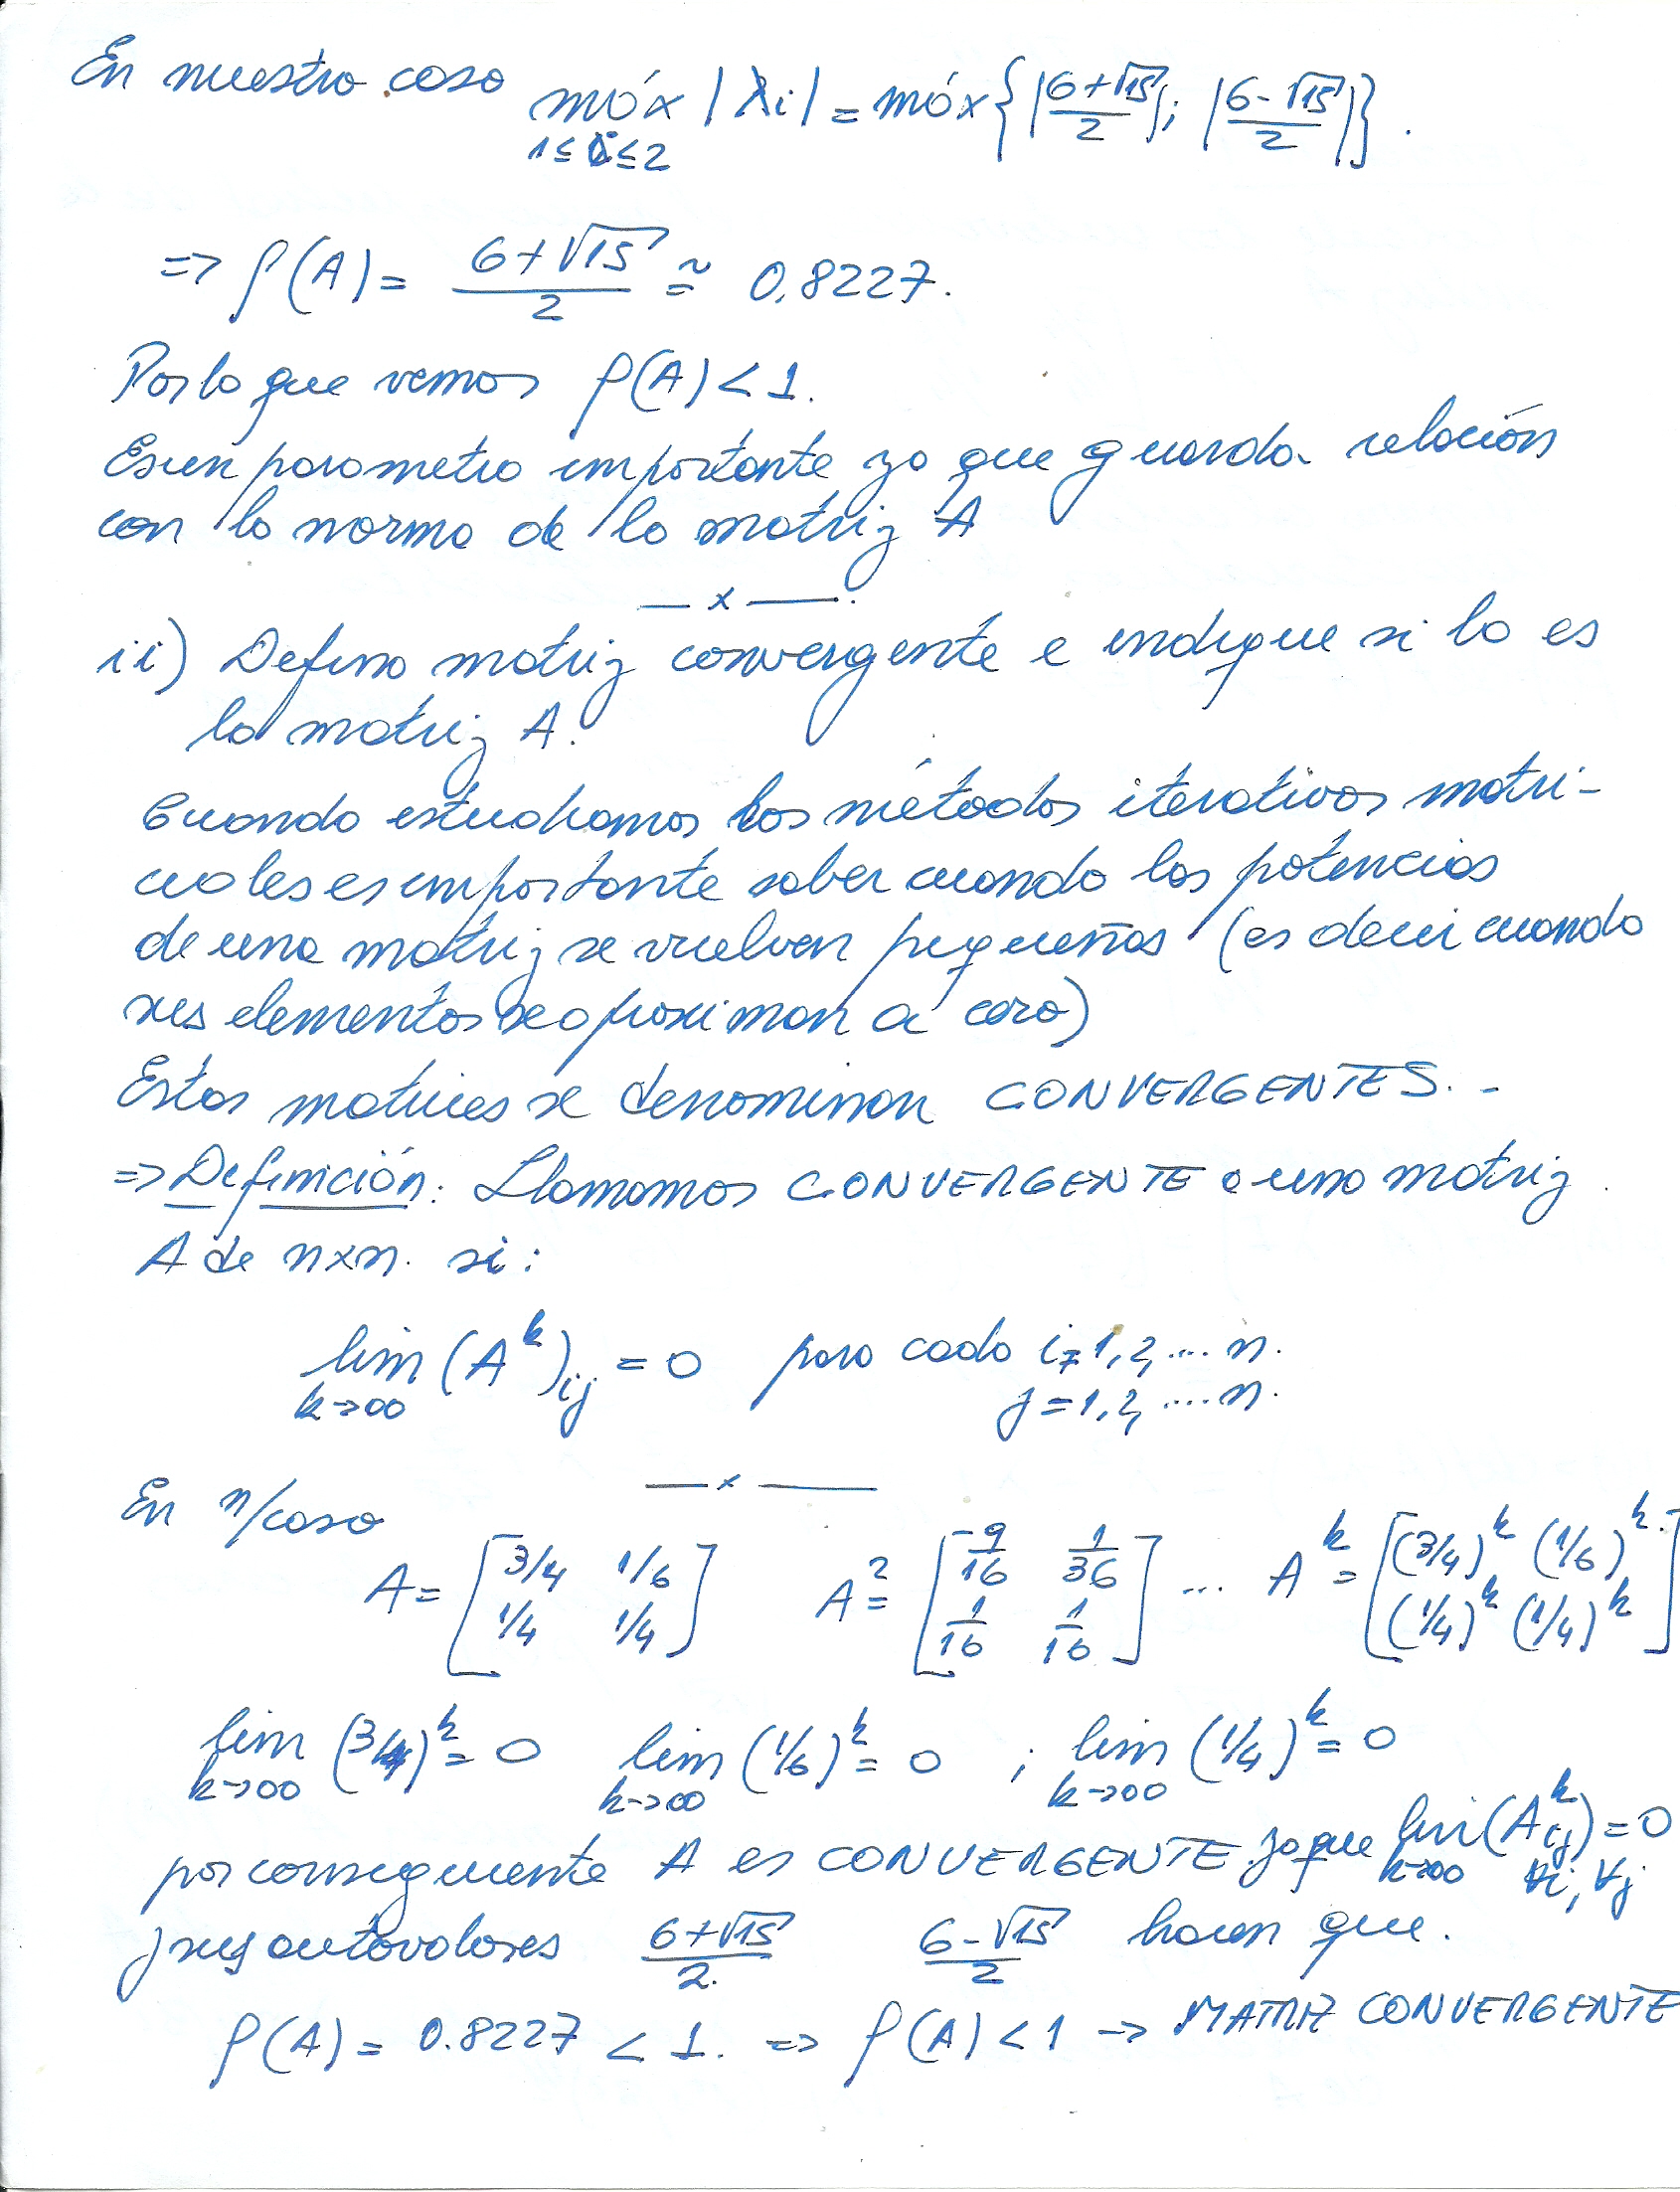 En nuestro caso máx |λi| = máx{|6+√15/2|; |6-√15/2|}.
1≤i≤2
=> ρ(A) = 6+√15/2 ≈ 0,8227.
Por lo que vemos ρ(A) < 1.
Es un parametro importante ya que guarda relación
con la norma de la matriz A
— x —.
ii) Defina matriz convergente e indique si lo es
la matriz A.
Cuando estudiamos los métodos iterativos matri-
ciales es importante saber cuando las potencias
de una matriz se vuelven pequeñas (es decir cuando
sus elementos se aproximan a cero)
Estas matrices se denominan CONVERGENTES. -
=> Definición: Llamamos CONVERGENTE a una matriz
A de n×n. si:
lim (A^k)ij = 0 para cada i=1,2,....n.
k→∞ j=1,2,....n.
— x —
En n/caso
A = [3/4 1/6 A² = [9/16 1/36 ... A^k = [(3/4)^k (1/6)^k
1/4 1/4] 1/16 1/16] (1/4)^k (1/4)^k]
lim (3/4)^k = 0 lim (1/6)^k = 0 ; lim (1/4)^k = 0
k→∞ k→∞ k→∞
por consiguiente A es CONVERGENTE ya que lim (A^k ij) = 0
k→∞ ∀i, ∀j
y sus autovalores 6+√15/2. 6-√15/2 hacen que.
ρ(A) = 0.8227 < 1. => ρ(A) < 1 → MATRIZ CONVERGENTE